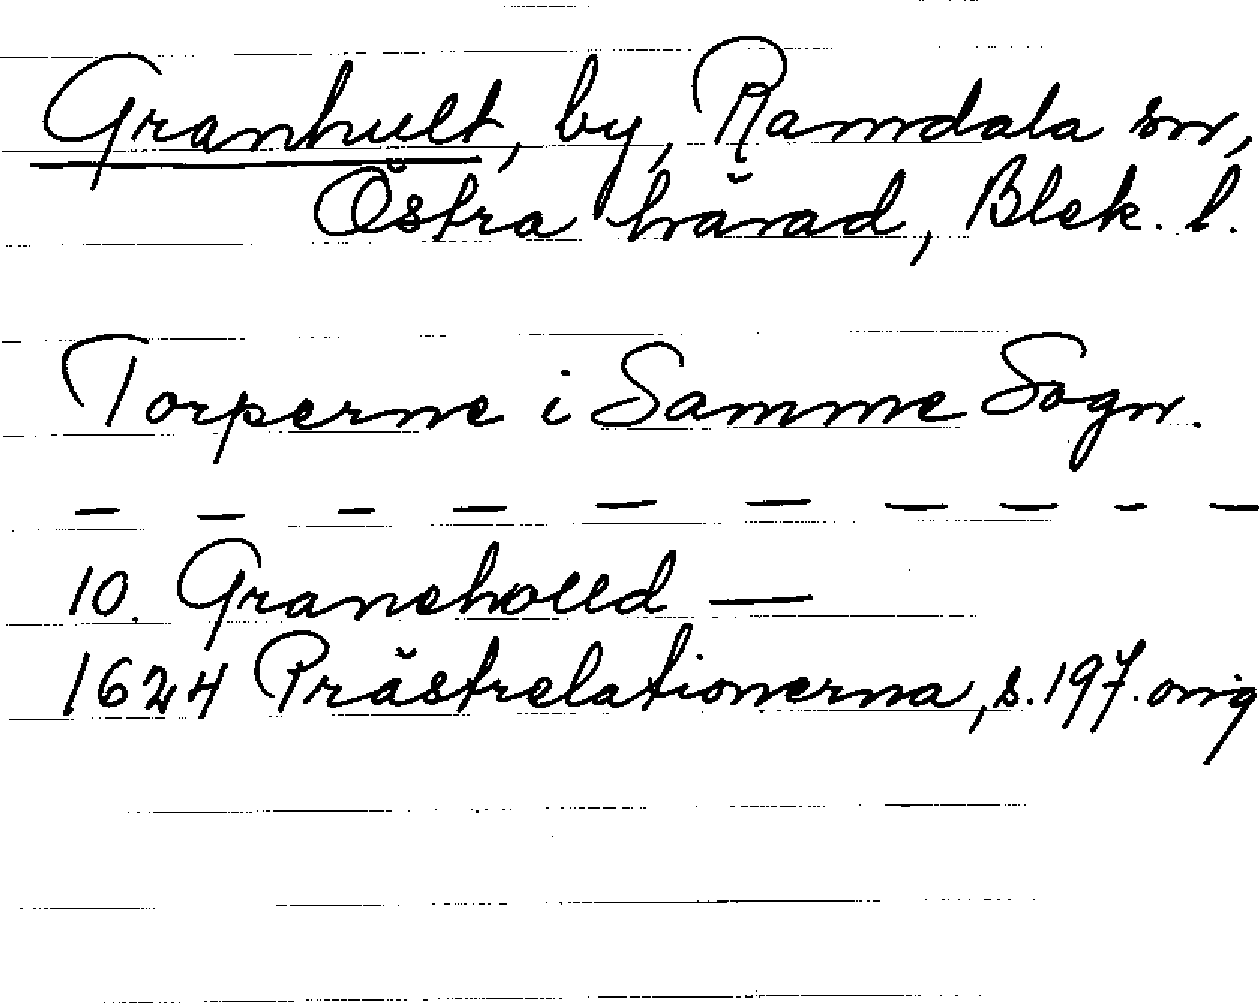 Granhult, by, Ramdala sn,
Östra härad, Blek. l.
Torperne i Samme Sogn.
— — — — — — — — — —
10. Graneholld —
1624 Prästrelationerna, s. 197. orig